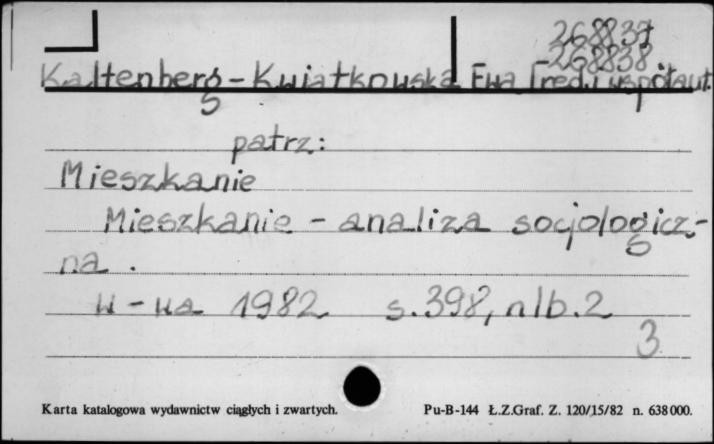 268837
-268838
Kaltenberg-Kwiatkowska Ewa [red. i współaut.
patrz:
Mieszkanie
Mieszkanie - analiza socjologicz-
na.
W-wa 1982 s.398, nlb.2
3
Karta katalogowa wydawnictw ciągłych i zwartych. Pu-B-144 Ł.Z.Graf. Z. 120/15/82 n. 638000.